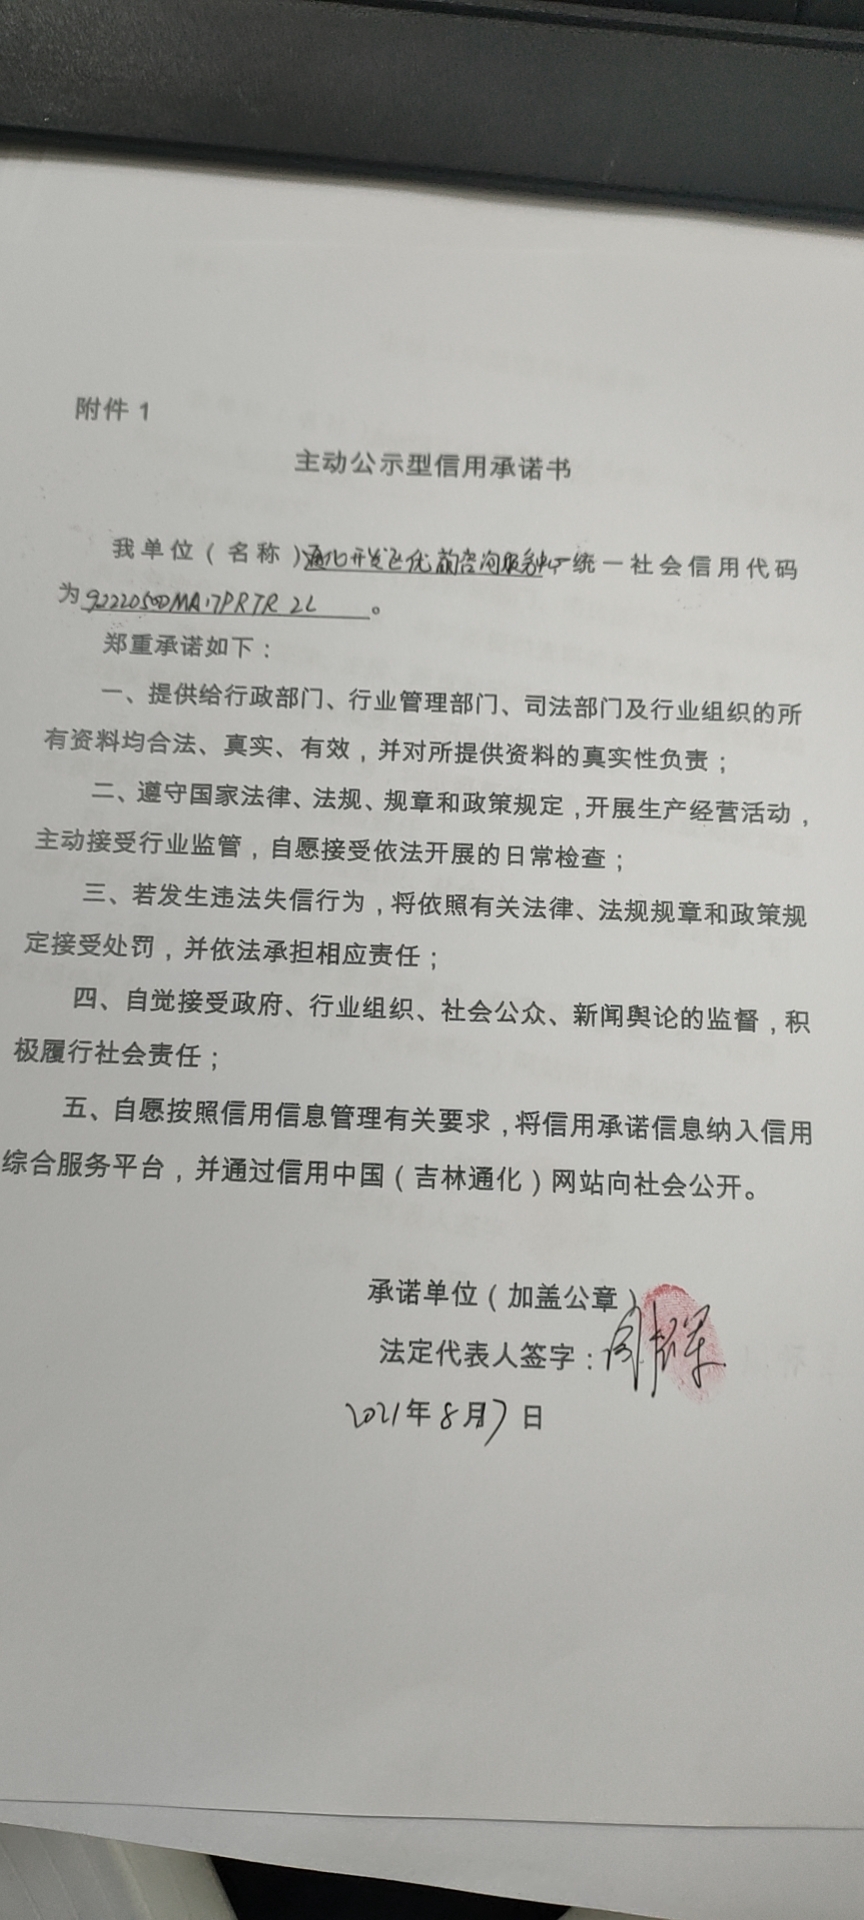 附件 1
主动公示型信用承诺书
我单位（名称）通化开发区优韵咨询服务中心统一社会信用代码
为92220500MA17PRTR2L。
郑重承诺如下：
一、提供给行政部门、行业管理部门、司法部门及行业组织的所
有资料均合法、真实、有效，并对所提供资料的真实性负责；
二、遵守国家法律、法规、规章和政策规定，开展生产经营活动，
主动接受行业监管，自愿接受依法开展的日常检查；
三、若发生违法失信行为，将依照有关法律、法规规章和政策规
定接受处罚，并依法承担相应责任；
四、自觉接受政府、行业组织、社会公众、新闻舆论的监督，积
极履行社会责任；
五、自愿按照信用信息管理有关要求，将信用承诺信息纳入信用
综合服务平台，并通过信用中国（吉林通化）网站向社会公开。
承诺单位（加盖公章）
法定代表人签字：
2021年8月17日